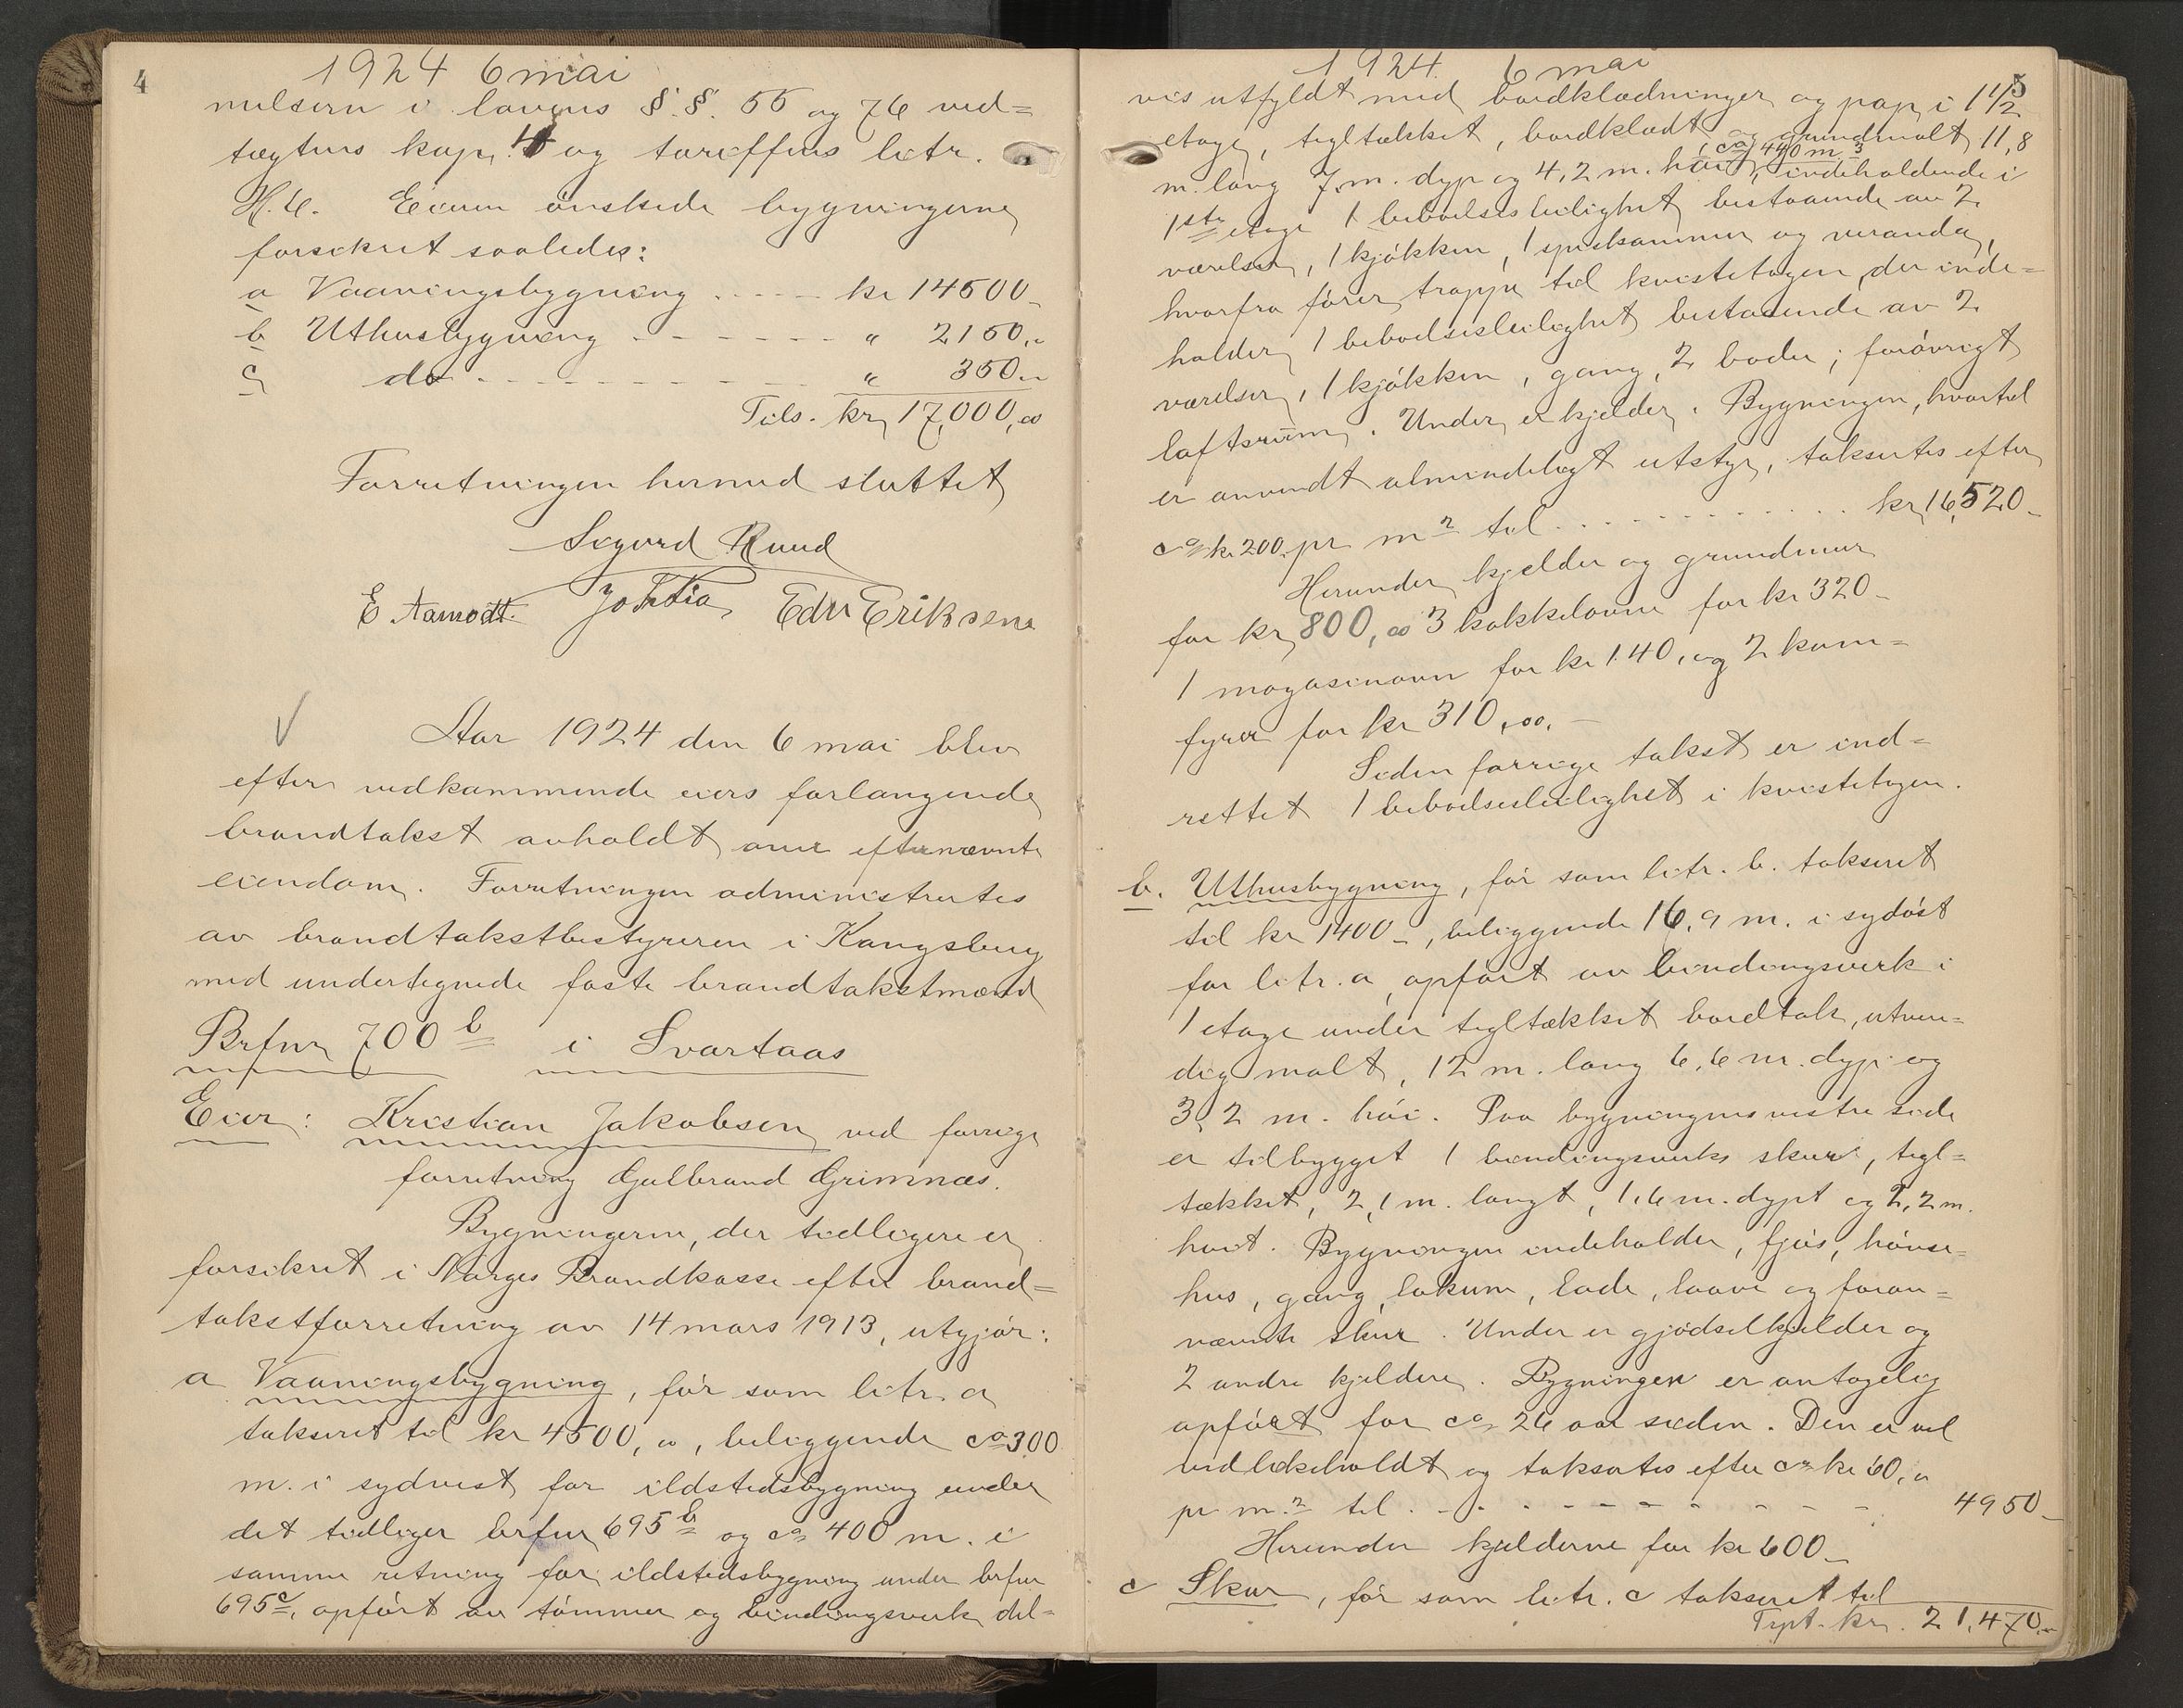 4
1924 6 mai
melsern i lovens §.§. 55 og 76 ved=
tægtens kap. 4 og tariffens litr.
H. 6. Eieren ønskede bygningerne
forsikret saaledes:
a Vaaningsbygning . - - - - kr 14500_
b Uthusbygning - - - - - - - " 2150,-
c do - - - - - - - - - - - " 350,-
Tils. kr 17,000,00
Forretningen hermed sluttet
Sigurd Ruud
E. Aamodt. Edv Eriksen
Aar 1924 den 6 mai blev
efter vedkommende eiers forlangende
brandtakst avholdt over efternævnte
eiendom. Forretningen administrertes
av brandtakstbestyreren i Kongsberg
med undertegnede faste brandtakstmænd
Brfnr 700 b i Svartaas
Eier: Kristian Jakobsen ved forrige
forretning Gulbrand Grimnæs.
Bygningerne, der tidligere er
forsikret i Norges Brandkasse efter brand=
takstforretning av 14 mars 1913, utgjør:
a Vaaningsbygning, før som litr. a
taksert til kr 4500,00, beliggende ca 300
m. i sydvest for ildstedsbygning under
det tidliger brfnr 695 b og ca 400 m. i
samme retning for ildstedsbygning under brfnr
695 c, opført av tømmer og bindingsverk del=
5
1924. 6 mai
vis utfyldt med bordklædninger og pap, i 1 1/2
etage, tegltækket, bordklædt og grundmalt 11,8
m. lang 7, m. dyp og 4,2 m. høi, ca 440 m3 indeholdende i
1ste etage 1 beboelsesleilighet bestaaende av 2
værelser, 1 kjøkken, 1 spisekammer og veranda,
hvorfra fører trappe til kvistetagen, der inde=
holder 1 beboelsesleilighet bestaaende av 2
værelser, 1 kjøkken, gang, 2 boder; forøvrigt
loftsrum. Under er kjelder. Bygningen, hvortil
er anvendt almindeligt utstyr, taksertes efter
ca kr 200. pr m2 til . . . . . . . . . . kr 16,520_
Herunder kjelder og grundmur
for kr 800,00 3 kakkelovne for kr 320_
1 magasinovn for kr 140, og 2 kom=
fyrer for kr 310,00._
Siden forrige takst er ind=
rettet 1 beboelsesleilighet i kvistetagen.
b. Uthusbygning, før som litr. b. taksert
til kr 1400_, beliggende 16,9 m. i sydøst
for litr. a, opført av bindingsverk i
1 etage under tegltækket bordtak, utven=
dig malt, 12 m. lang 6,6 m. dyp og
3,2 m. høi. Paa bygningens vestre side
er tilbygget 1 bindingsverks skur, tegl=
tækket, 2,1 m. langt, 1,6 m. dypt og 2,2 m.
høit. Bygningen indeholder, fjøs, hønse=
hus, gang, lokum, lade, laave og foran=
nævnte skur. Under er gjødselkjelder og
2 andre kjeldere. Bygningen er antagelig
opført for ca 26 aar siden. Den er vel
vedlikeholdt og taksertes efter ca kr 60,00
pr m.2 til . - - - - - - - - - - 4950_
Herunder kjelderne for kr 600_
c Skur, før som litr. c taksert til
Trpt. kr. 21,470,-